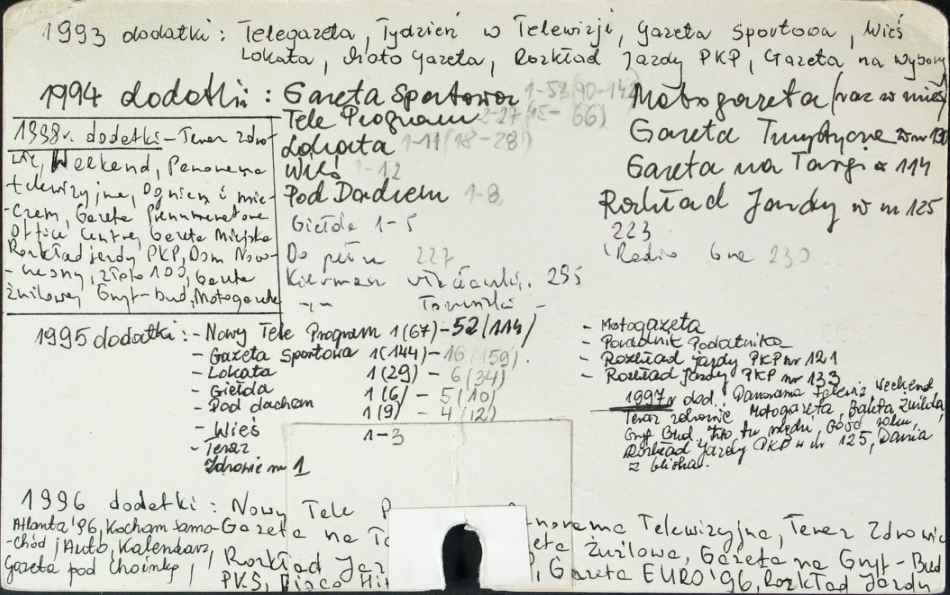 1993 dodatki: Telegazeta, Tydzień w Telewizji, Gazeta Sportowa, Wieś
Lokata, Moto Gazeta, Rozkład Jazdy PKP, Gazeta na wybory
1994 dodatki: Gazeta Sportowa 1-52(90-142)
Tele Program 2-27(15-66)
Lokata 1-11(18-28)
Wieś 1-12
Pod Dachem 1-8
Giełda 1-5
Do pełna 227
Kiermasz 295
-"- Toruński -
Motogazeta (raz w mies)
Gazeta Turystyczna w nr 120
Gazeta na Targi 114
Rozkład Jazdy w nr 125
223
Radio Gra 230
1998 r. dodatki - Teraz zdro-
wie, Weekend, Panorama
telewizyjna, Ogniem i mie-
-czem, Gazeta Prenumeratora
Office Centre, Gazeta Miejska
Rozkład jazdy PKP, Dom Nowo-
-czesny, Złota 100, Gazeta
Żużlowa, Gryf-Bud, Motogazeta
1995 dodatki: - Nowy Tele Program 1(67)-52/114/
- Gazeta Sportowa 1(144)-16(159).
- Lokata 1(29) - 6(34)
- Giełda 1(6) - 5(10)
- Pod dachem 1(9) - 4(12)
- Wieś 1-3
- Teraz
Zdrowie nr 1
- Motogazeta
- Poradnik Podatnika
- Rozkład jazdy PKP nr 121
- Rozkład Jazdy PKP nr 133
1997 r dod. Panorama Telewiz Weekend
Teraz zdrowie Motogazeta, Gazeta Żużlowa
Gryf Bud, Kto tu rządzi, Głos roku,
Rozkład jazdy PKP w nr 125, Dania
z bliska.
1996 dodatki: Nowy Tele P
norama Telewizyjna, Teraz Zdrowie
Atlanta'96, Kocham Samo-
-chód /Auto, Kalendarz,
Gazeta pod choinkę,
Gazeta na
eta Żużlowa, Gazeta na Gryf-Bud
Rozkład Jaz
P, Gazeta EURO'96, Rozkład Jazdy
PKS, Disco Hit